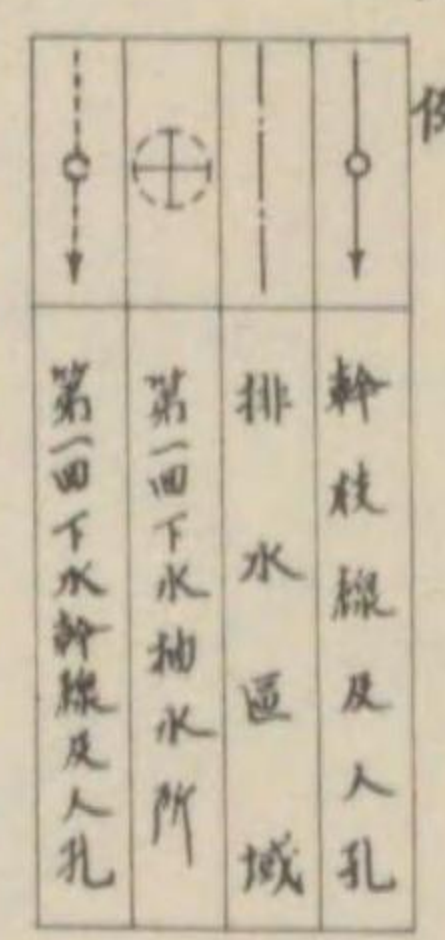 幹枝線及人孔
排水區域
第一回下水抽水所
第一回下水幹線及人孔